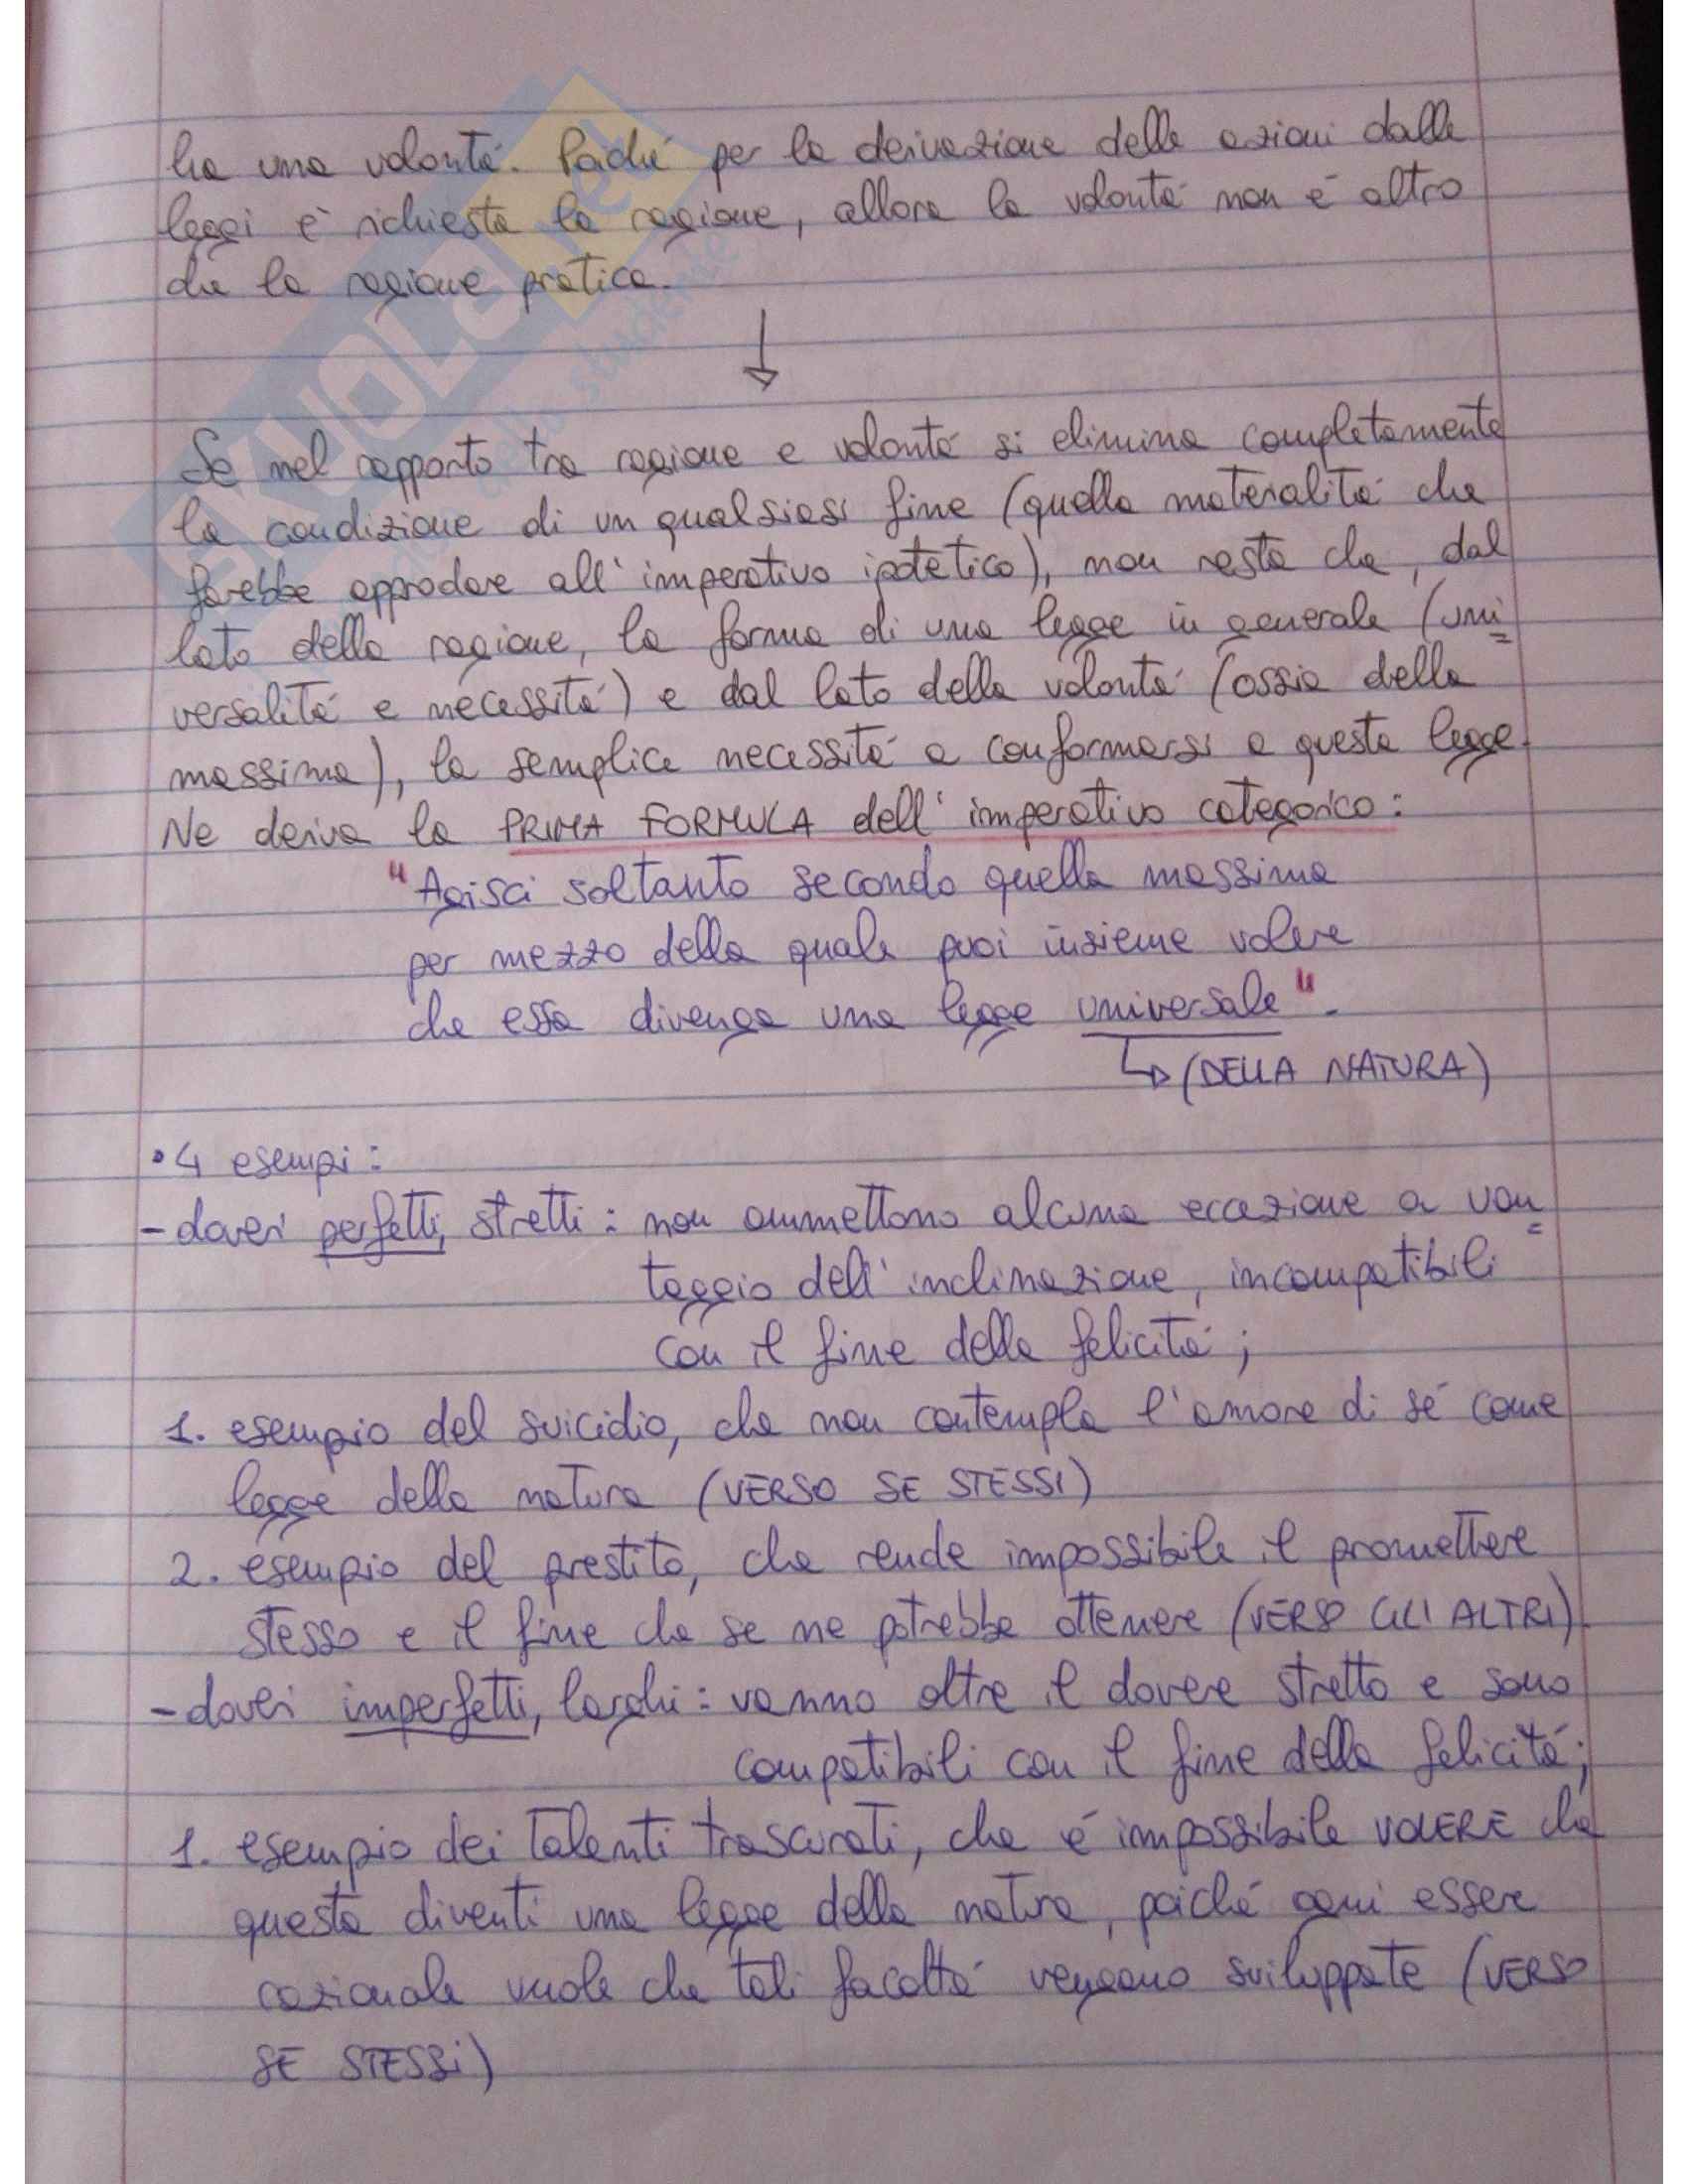 ha una volontá. Poiché per la derivazione delle azioni dalle
leggi è richiesta la ragione, allora la volontá non é altro
che la ragione pratica.
↓
Se nel rapporto tra ragione e volontá si elimina completamente
la condizione di un qualsiasi fine (quella materialitá che
farebbe approdare all'imperativo ipotetico), non resta che, dal
lato della ragione, la forma di una legge in generale (uni=
versalitá e necessitá) e dal lato della volontá (ossia della
massima), la semplice necessitá a conformarsi a questa legge.
Ne deriva la PRIMA FORMULA dell'imperativo categorico:
"Agisci soltanto secondo quella massima
per mezzo della quale puoi insieme volere
che essa divenga una legge universale".
↳ (DELLA NATURA)
• 4 esempi:
- doveri perfetti, stretti: non ammettono alcuna eccezione a van=
taggio dell'inclinazione, incompatibili
con il fine della felicitá;
1. esempio del suicidio, che non contempla l'amore di sé come
legge della natura (VERSO SE STESSI)
2. esempio del prestito, che rende impossibile il promettere
stesso e il fine che se ne potrebbe ottenere (VERSO GLI ALTRI)
- doveri imperfetti, larghi: vanno oltre il dovere stretto e sono
compatibili con il fine della felicitá;
1. esempio dei talenti trascurati, che é impossibile VOLERE che
questa diventi una legge della natura, poiché ogni essere
razionale vuole che tali facoltá vengano sviluppate (VERSO
SE STESSI)